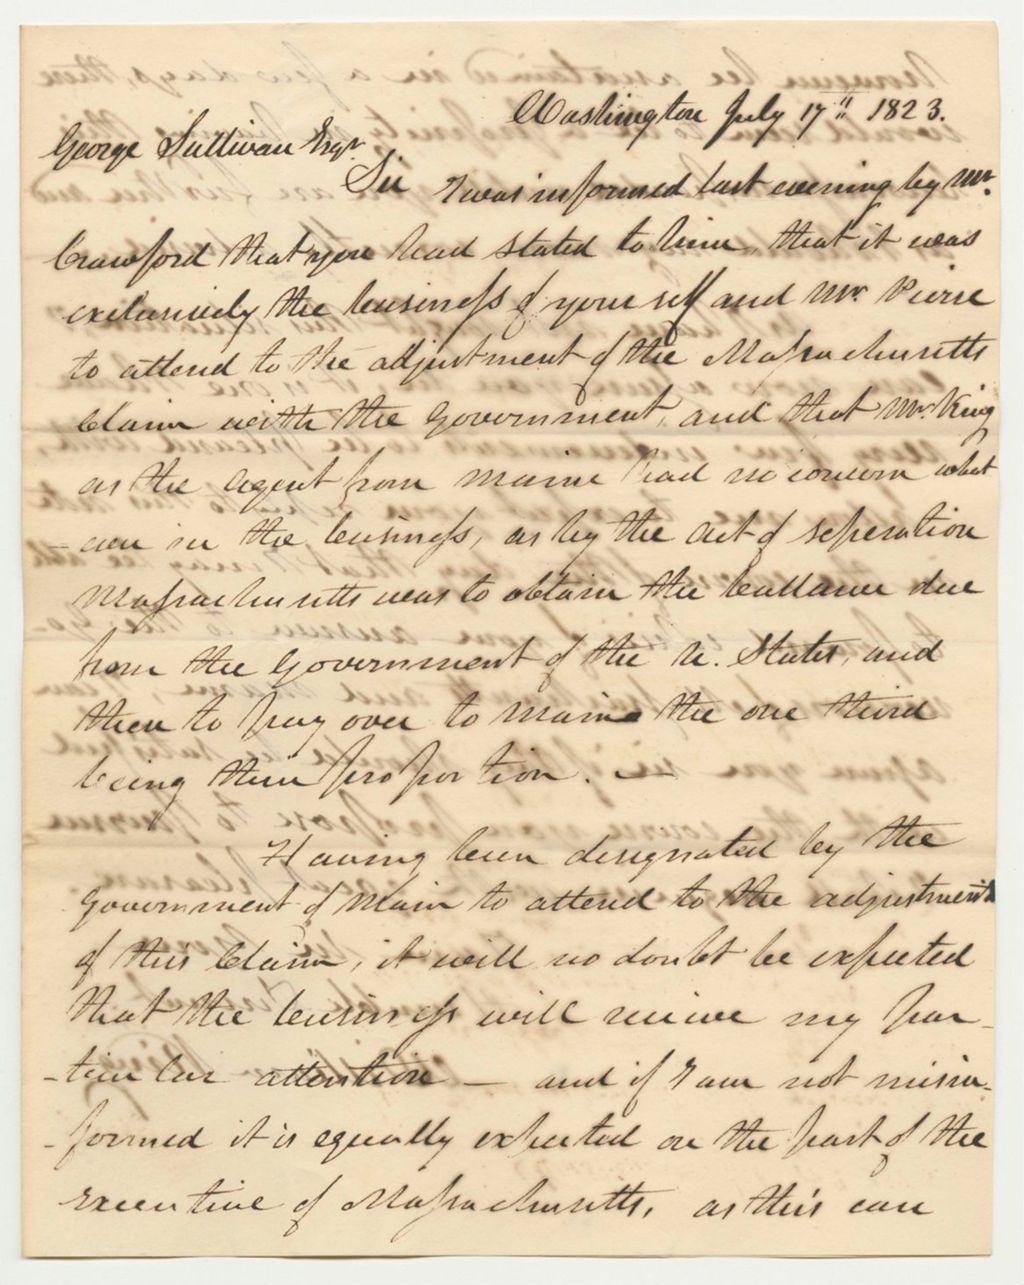 Washington July 17" 1823.
George Sullivan Esqr.
Sir I was informed last evening by Mr.
Crawford that you had stated to him, that it was
exclusively the business of your self and Mr Pierce
to attend to the adjustment of the Massachusetts
Claim with the Government, and that Mr King
as the agent from Maine had no concern what
-ever in the business, as by the Act of seperation
Massachusetts was to obtain the ballance due
from the Government of the U. States, and
then to pay over to Maine the one third
being their proportion. —
Having been designated by the
Government of Main to attend to the adjustment
of this Claim, it will no doubt be expected
that the business will receive my par-
-ticular attention — and if I am not misin-
-formed it is equally expected on the part of the
Executive of Massachusetts, as this can